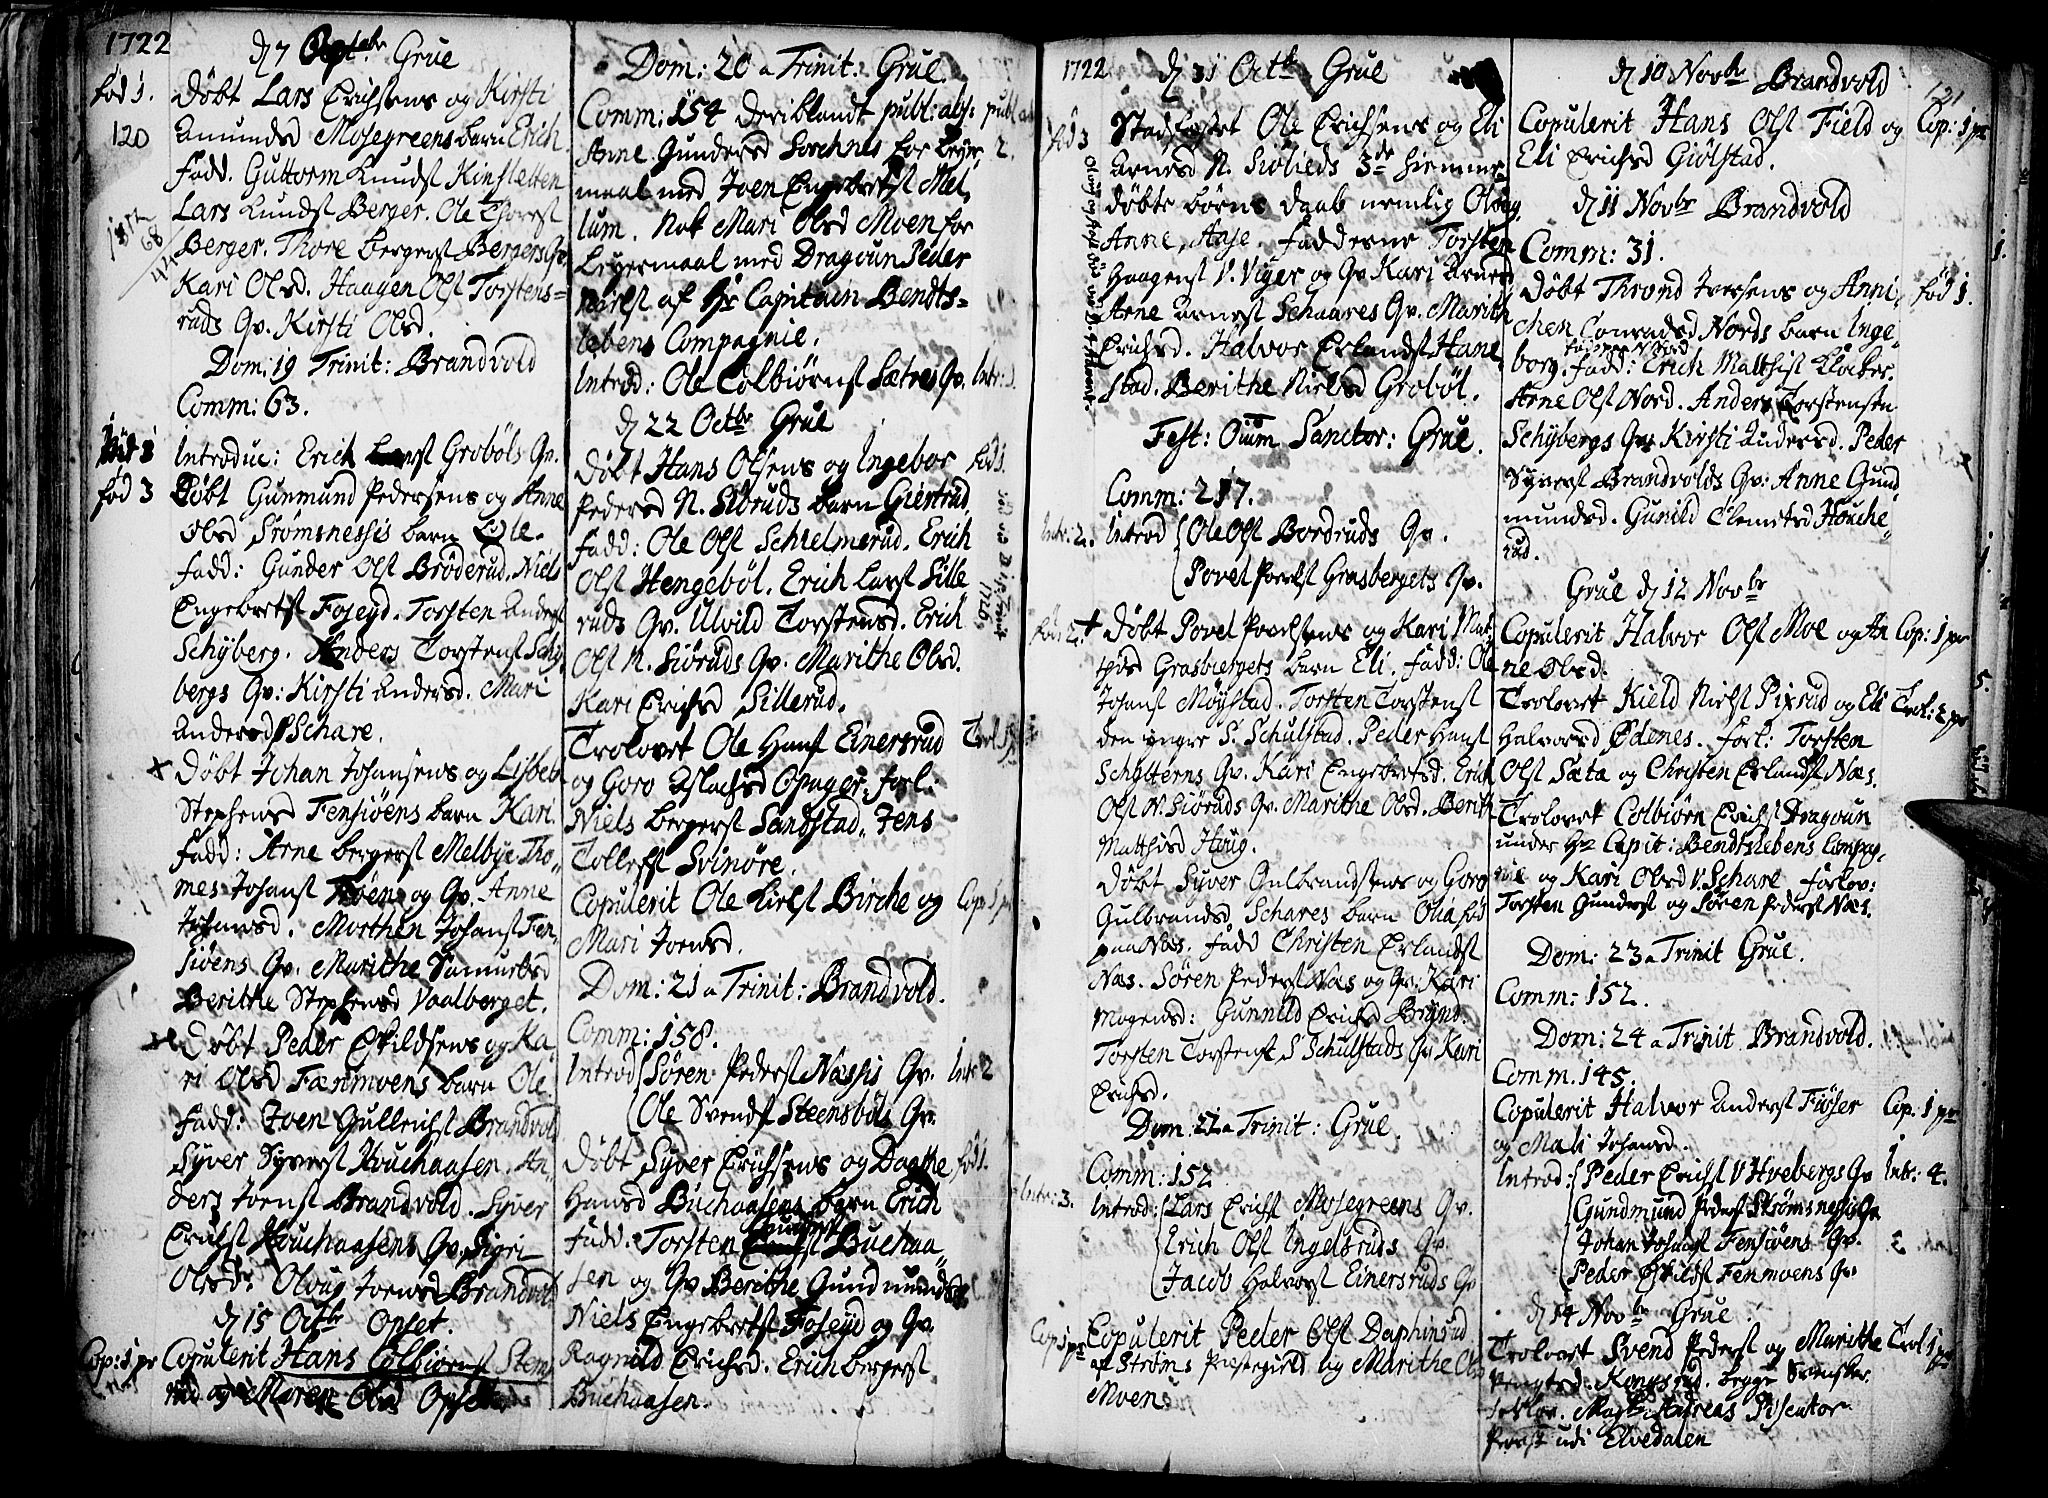 1722
d 7 Octobr Grue
fød 1.
Døbt Lars Erichsens og Kirsti
120
Amundsd Mosegreens barn Erich.
Fadd. Guttorm Knudst Kinsletten
Lars Knudst Berger. Ole Thorest
Berger. Thore Bergerst Bergers Qv.
Kari Olsd. Haagen Olst Torstens=
ruds Qv. Kirsti Olsd.
Dom: 19 Trinit: Brandvold
Comm: 63.
Introduc: Erich Larst Grobøls Qv.
fød 3
Døbt Gunmund Pedersens og Anne
Olsd Strømsnessis barn Ole.
Fadd: Gunder Olst Brøderud. Niels
Engebretst Foseyd. Torsten Anderst
Schyberg. Anders Torstenst Schy
bergs Qv: Kirsti Andersd. Mari
Andersd Schare.
Døbt Johan Johansens og Lisbeth
Stephensd Fensiøens barn Kari.
Fadd: Arne Bergerst Melbye. Tho=
mes Johanst Moen og Qv. Anne
Johansd. Morthen Johanst Fen=
siøens Qv. Marithe Samuelsd
Berithe Stephensd Vaalberget.
Døbt Peder Eskildsens og Ka
ri Olsd Fænmoens barn Ole
Fadd: Joen Gullerichst Brandvold
Syver Syverst Houchaasen. An=
ders Joenst Brandvold. Syver
Erichst Houchaasens Qv. Sigri
Olsd. Oloug Joensd Brandvold
d 15 Octbr Opset.
Cop: 1 pr
Copulerit Hans Colbiørnst Stem
rud og Maren Olsd Opset.
Dom: 20 a Trinit: Grue.
Comm: 154 deriblandt publ: abs:
Anne Gundersd Sorchnes for Leyer 2.
maal med Joen Engebretst Mel=
lum. Nok Mari Olsd Moen for
Leyermaal med Dragoun Peder
Nielst af Hr Capitain Bendts=
lebens Compagnie.
Introd: Ole Colbiørnst Sætres Qv. Intr: 1.
d 22 Octbr Grue
Døbt Hans Olsens og Ingebor fød 1.
Pedersd N. Siøruds barn Giertrud.
Fadd: Ole Olst Schielmerud. Erich
Olst Hengebøl. Erich Larst Sille
ruds Qv. Ulvild Torstensd. Erich
Olst N. Siøruds Qv. Marithe Olsd.
Kari Erichsd Sillerud.
Trolovet Ole Hanst Einersrud
og Goro Aslachsd Opager. forl:
Niels Bergerst Sandstad. Jens
Tollefst Svinøre.
Copulerit Ole Kielst Birche og Cop: 1 pr
Mari Joensd.
Dom: 21 a Trinit: Brandvold.
Comm: 158.
Introd Søren Pederst Næssis Qv. Intr: 2
Ole Svendst Steensbøls Qv.
Døbt Syver Erichsens og Dorthe fød 1.
Hansd Buchaasens barn Erich
Fadd: Torsten Buchaa=
sen og Qv Berithe Gundmundsd
Niels Engebretst Foseyd og Qv
Ragnild Erichsd. Erich Bergerst
Buchaasen.
1722
d 31 Octb Grue
fød 3
Stadfæstet Ole Erichsens og Eli
Arnesd N. Siølieds 3de hiemme=
døbte børns daab nemlig Oloug,
Anne, Aase. Fadderne Torsten
Haagenst V. Viger og Qv Kari Arnesd
Arne Arnest Schaares Qv. Marith
Erichsd. Halvor Erlandst Hane
stad. Berithe Nielsd Grobøl.
Fest: Oium Sanctor: Grue.
Comm: 217.
Intr: 2.
Introd Ole Olst Bordruds Qv.
Povel Poelst Grasbergets Qv.
Døbt Povel Poelsens og Kari Mat=
thisd Grasbergets barn Eli. Fadd: Ole
Johanst Møystad. Torsten Torstenst
den yngre S. Schulstad. Peder Hanst
Schytterns Qv. Kari Engebretsd. Erich
Olst N. Siøruds Qv. Marithe Olsd. Berith
Matthisd Houg.
Døbt Syver Gulbrandsens og Goro
Gulbrandsd Schares barn Olia fød
paa Næs. Fadd Christen Erlandst
Næs. Søren Pederst Næs og Qv. Kari
Mogensd: Gunnild Erichsd Brynd.
Torsten Torstenst S Schulstads Qv Kari
Erichsd.
Dom: 22 a Trinit: Grue.
Comm: 152
Intr: 3.
Introd: Lars Erichst Mosegreens Qv.
Erich Olst Ingelsruds Qv.
Jacob Halvorst Einersruds Qv
Cop 1 pr
Copulerit Peder Olst Daphinrud
af Strøms Præstegield og Marithe Ols
Moen
d 10 Novbr Brandvold
121
Copulerit Hans Olst Field og Cop: 1 pr
Eli Erichsd Giølstad.
d 11 Novbr Brandvold
Comm: 31.
Døbt Thrond Iversens og Anni= fød 1.
chen Conradsd Nords barn Inge=
borg. Fadd: Erich Matthist Klocker.
Arne Olst Nord. Anders Torstensen
Schybergs Qv Kirsti Andersd. Peder
Syverst Brandvolds Qv: Anne Gund
mundsd. Gunild Clemetsd Houche=
rud.
Grue d 12 Novbr
Copulerit Halvor Olst Moe og An Cop: 1 pr
ne Olsd.
Trolovet Kield Nielst Pixrud og Eli Trol: 2 pr
Halvorsd Ødenes. Forl: Torsten
Olst Sæta og Christen Erlandst Næs.
Trolovet Colbiørn Erichst Dragoun
under Hr Capit: Bendtslebens Compag=
nie og Kari Olsd V. Schare forlov:
Torsten Gunderst og Søren Pederst Næs.
Dom: 23 a Trinit Grue.
Comm: 152.
Dom: 24 a Trinit Brandvold.
Comm. 145.
Copulerit Halvor Anderst Fiøser Cop: 1 pr
og Mali Johansd.
Introd: Peder Erichst V Hvebergs Qv Intr: 4.
Gundmund Pederst Strømsnessis Qv
Johan Johanst Fensiøens Qv.
Peder Eskildst Fenmoens Qv.
d 14 Novbr Grue
Trolovet Svend Pederst og Marithe Trol 1 pr
Kongsrud. begge Svensker.
forlov. Magtr. Andreas Piscator
Præst udi Elvedalen